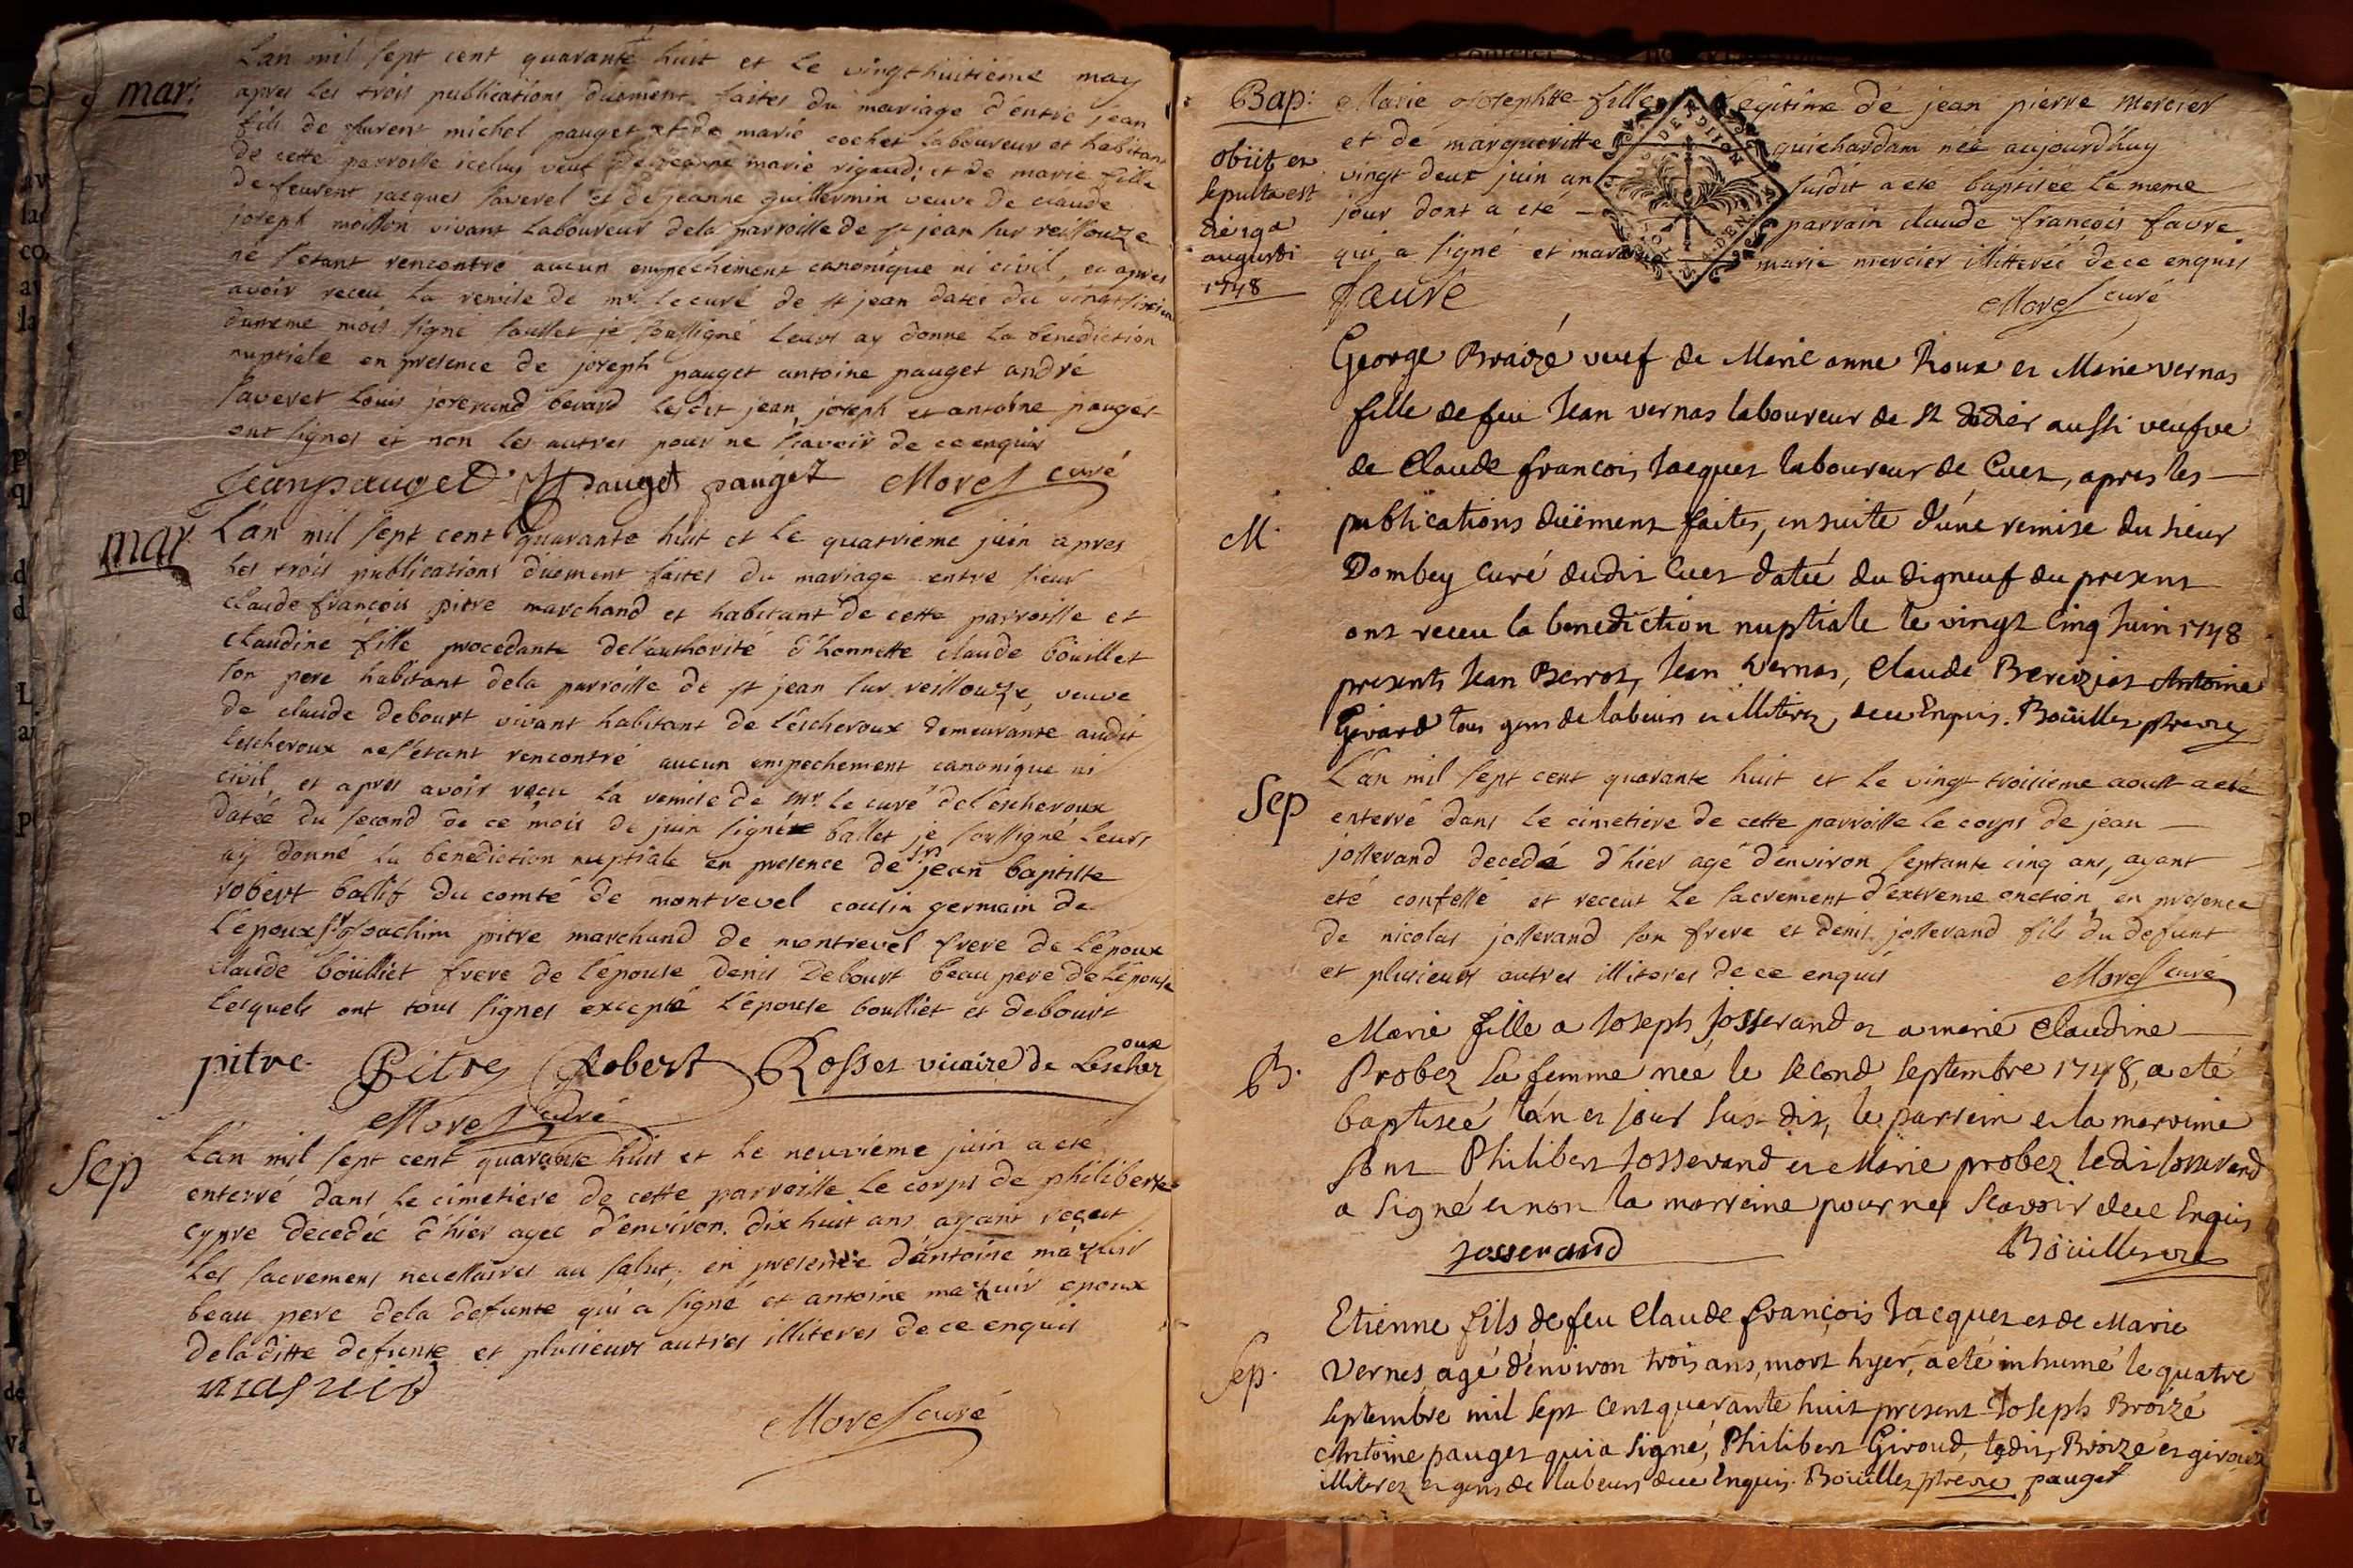 mar:
L'an mil sept cent quarante huit et le vingt huitieme may
apres les trois publications duement faites du mariage d'entre jean
fils de furent michel pauget et de marie cochet laboureur et habitant
de cette parroisse iceluy veuf de jeanne marie rigaud; et de marie fille
de feurent jacques saverel et de jeanne guillermin veuve de claude
joseph moisson vivant laboureur dela parroisse de st jean sur reissouze
ne s'etant rencontré aucun empechement canonique ni civil, et apres
avoir receu la remise de mr. le curé de st jean datée du
dumeme mois signé je soussigné leurs ay donné la benediction
nuptiale en presence de joseph pauget antoine pauget andré
saverel louis joserand bevard lesdit jean joseph et antoine pauget
ont signes et non les autres pour ne sçavoir de ce enquis
jean pauget Jpauget pauget Morel curé
mar
L'an mil sept cent quarante huit et le quatrieme juin apres
les trois publications düement faites du mariage entre sieur
claude françois pitre marchand et habitant de cette parroisse et
claudine fille procedante de l'authorité d'honnette claude boüillet
son pere habitant dela parroisse de st jean sur reissouze, veuve
de claude debourt vivant habitant de l'escheroux demeurante audit
lescheroux ne s'etant rencontré aucun empechement canonique ni
civil, et apres avoir receu la remise de mr. le curé de l'escheroux
datée du second de ce mois de juin signée ballet je soussigné leurs
ay donné la benediction nuptiale en presence de sr jean baptiste
robert ballif du comté de montrevel cousin germain de
l'epoux sr joachim pitre marchand de montrevel frere de l'epoux
claude boüilliet frere de l'epouse denis debourt beau pere de l'epouse
lesquels ont tous signes excepté l'epouse boulliet et debourt
pitre Pitre Robert Rosset vicaire de Lescheroux
Morel curé
Sep
L'an mil sept cent quarante huit et le neuvieme juin a eté
enterré dans le cimetiere de cette parroisse le corps de philiberte
cypre decedée d'hier agée d'environ dix huit ans ayant receut
les sacremens necessaires au salut, en presence d'antoine mazuir
beau pere dela defunte qui a signé et antoine mazuir epoux
dela ditte defunte et plusieurs autres illiteres de ce enquis
masuir
Morel curé
Bap:
Marie Josephtte fille legitime de jean pierre mercier
et de margueritte guichardan née aujourd'huy
vingt deux juin an susdit a eté baptisée le meme
jour dont a eté parrain claude françois favre
qui a signé et marraine marie mercier illitterée de ce enquis
obiit et
sepulta est
die 19a
augusti
1748
faure
Morel curé
M.
George Broizé veuf de Marie anne Roux et Marie vernas
fille de feu Jean vernas laboureur de st didier aussi veufve
de Claude francois Jacques laboureur de Cuet, apres les
publications düement faites, ensuite d'une remise du sieur
Dombey curé dudit Cuet datée du digneuf du present
ont receu la benediction nuptiale le vingt cinq Juin 1748
presents Jean Berrot, Jean vernas, Claude Bereiziat Antoine
Girard tous gens de labeur et illiterez, dece Enquis. Boüillet ptre vre
Sep
L'an mil sept cent quarante huit et le vingt troisieme aoust a eté
enterré dans le cimetiere de cette parroisse le corps de jean
josserand decedé d'hier agé d'environ septante cinq ans, ayant
eté confessé et receut le sacrement d'extreme onction en presence
de nicolas josserand son frere et denis josserand fils du defunt
et plusieurs autres illiteres de ce enquis
Morel curé
B.
Marie fille a Joseph Josserand et a marie Claudine
Probez sa femme née le second septembre 1748, a eté
baptiseé lán et jour sus-dit, le parrein et la marreine
sont Philibert Josserand et Marie probez ledit Josserand
a signé et non la marreine pour ne scavoir dece Enquis
josserand
Boüillet vre
Sep.
Etienne fils de feu Claude françois Jacques et de Marie
Vernes agé d'environ trois ans, mort hyer, a eté inhumé le quatre
septembre mil sept cent quarante huit present Joseph Broizé
Antoine pauget qui a signé, Philibert Giroud, ledit Broizé et giroud
illiterez et gens de labeurs dece Enquis. Boüillet ptre vre pauget